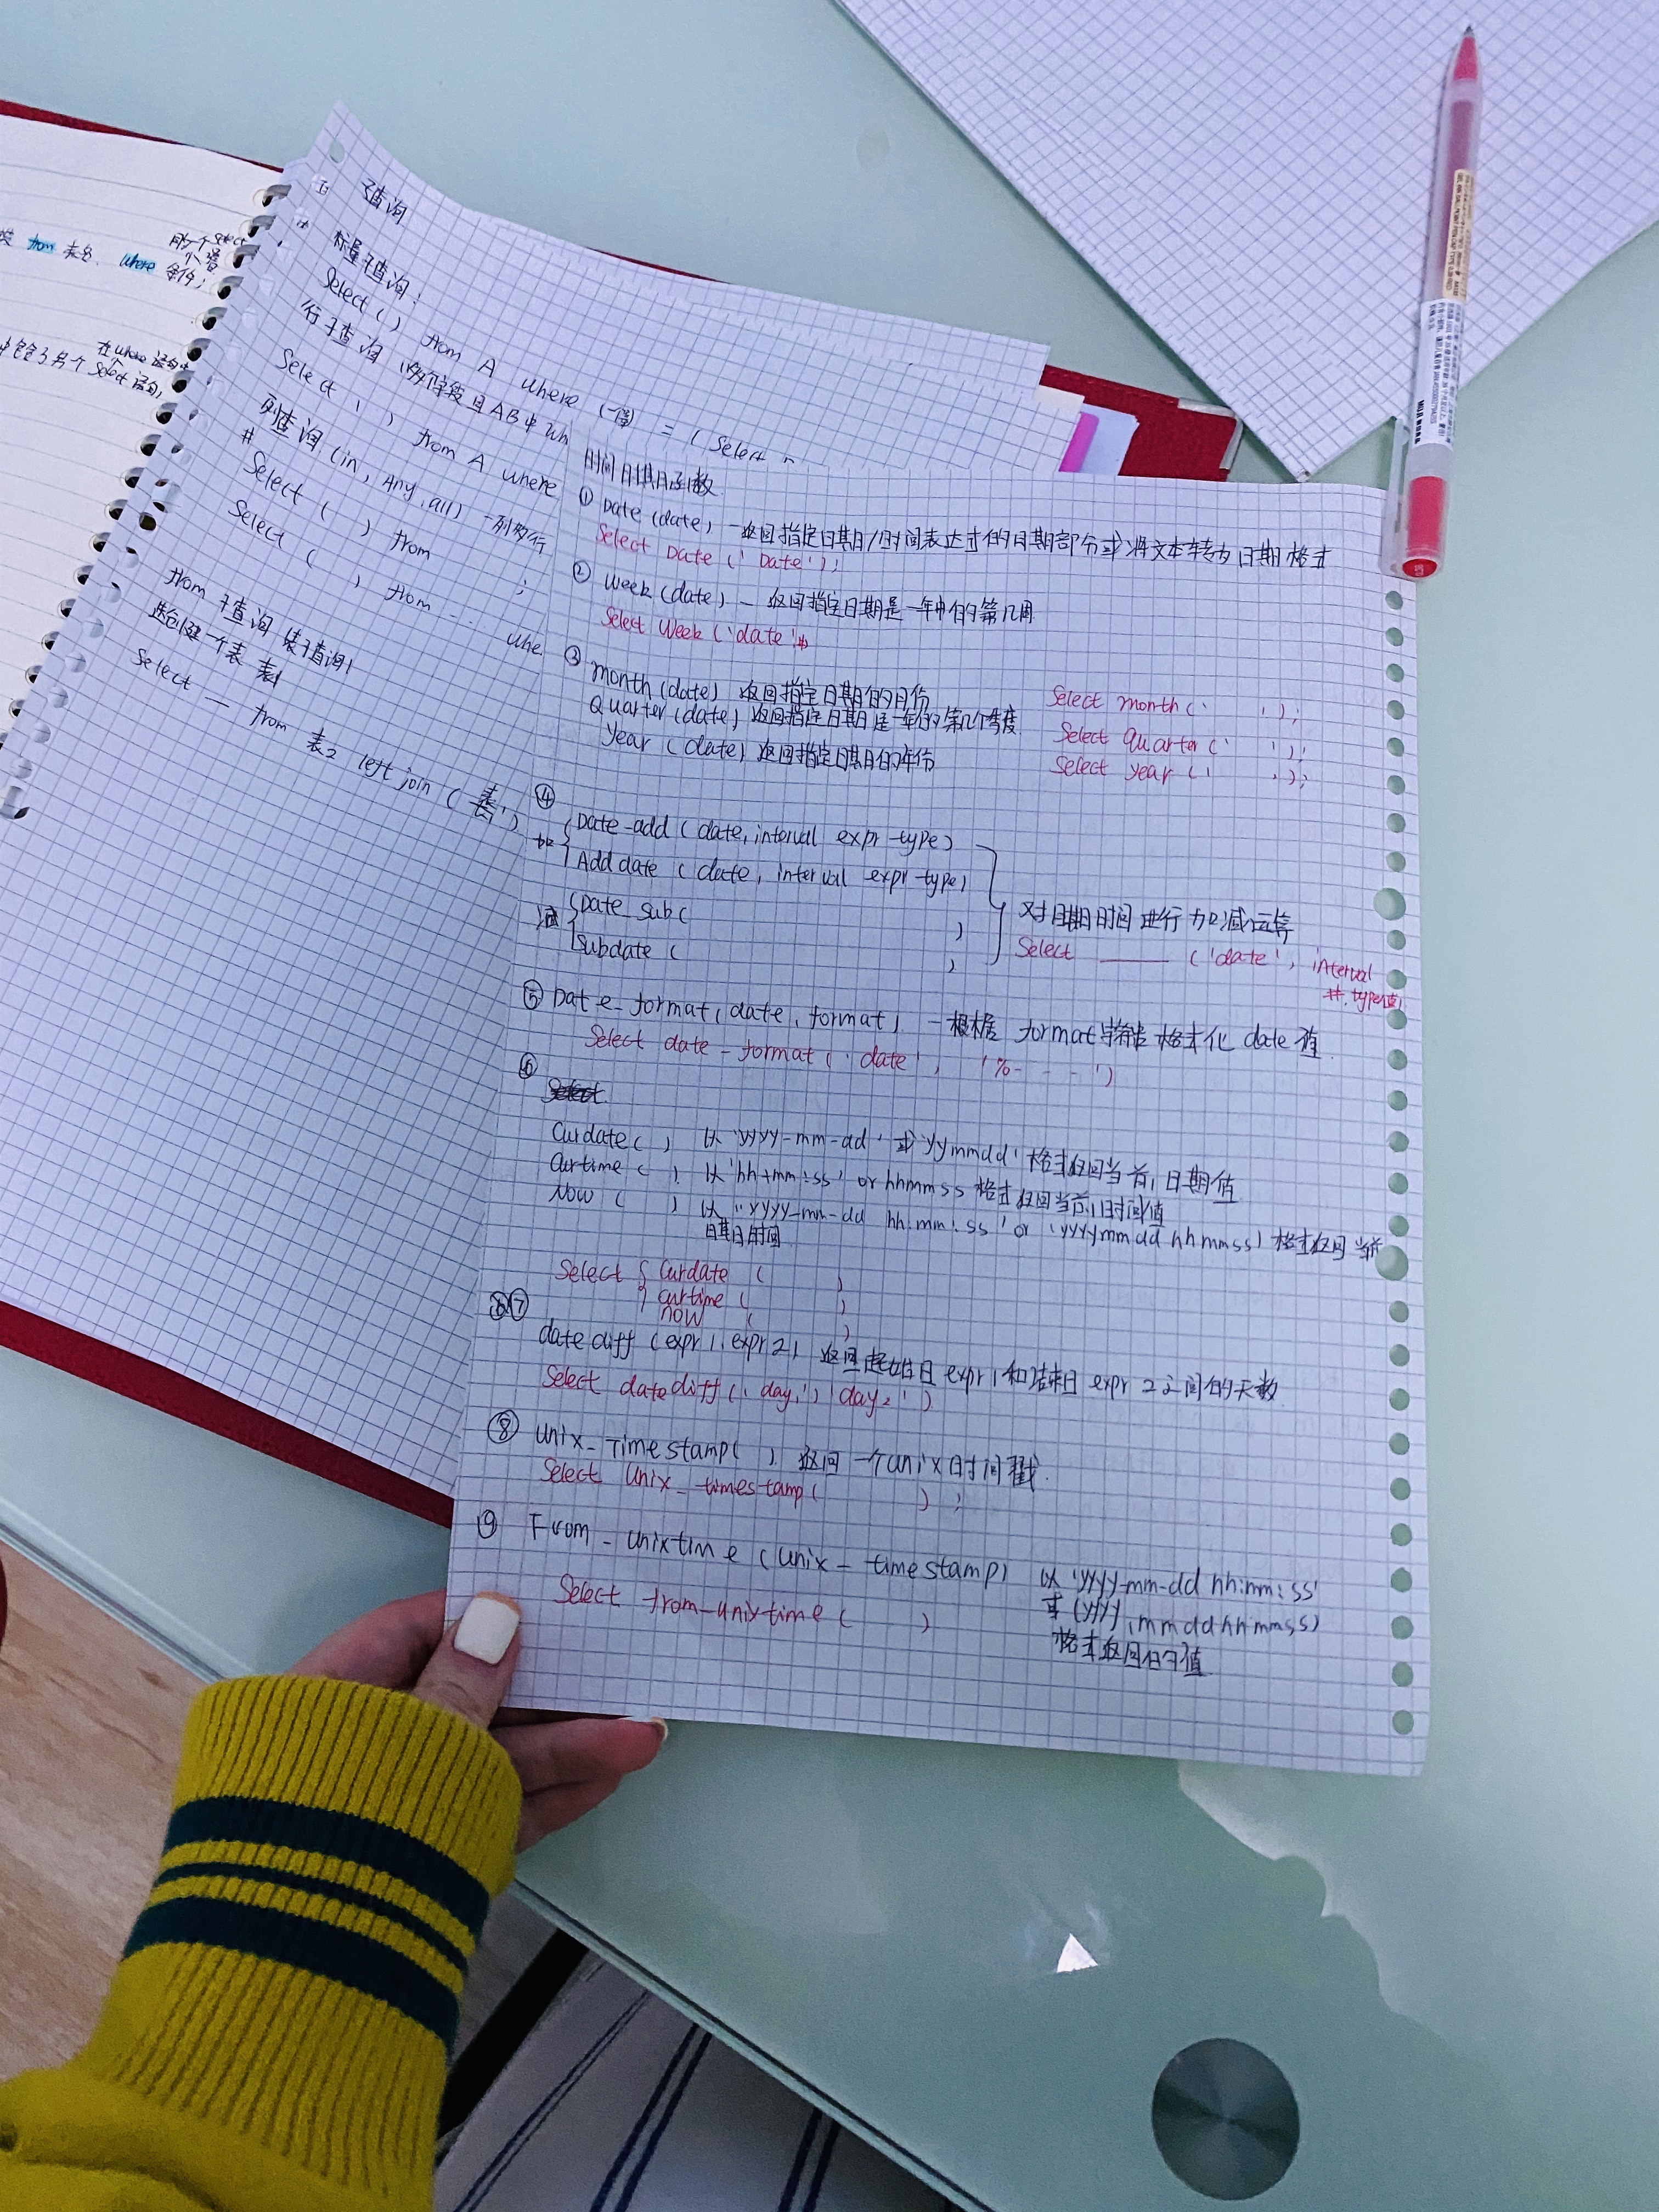 from 表名 where 条件;
在where语句中
另个Select语句,
子查询
# 标量子查询:
Select ( ) from A where (一个值) = ( Select
行子查询 (多个字段 且AB中 wh
Select ( ) from A where
列查询 (in, Any, all) 一列多行
# Select ( ) from ;
Select ( ) from -- whe
from 子查询 (表子查询)
Select —— from 表2 left join (表1)
时间日期函数
① Date (date) —返回指定日期/时间表达式的日期部分或将文本转为日期格式
Select Date ('Date');
② Week (date) — 返回指定日期是一年中的第几周
Select Week ('date'
③ month (date) 返回指定日期的月份 Select month (' ');
Quarter (date) 返回指定日期是一年的第几个季度 Select quarter (' ');
Year (date) 返回指定日期的年份 Select year (' ');
④
加 { Date-add (date, interval expr type)
Adddate (date, interval expr type)
减 { Date_sub ( )
Subdate ( )
对日期时间进行加减运算
Select —— ('date', interval
#, type值)
⑤ Date_format (date, format) —根据 format 格式化 date 值
Select date-format ('date', '%- - -')
⑥
Curdate ( ) 以 'yyyy-mm-dd' 或 'yymmdd' 格式返回当前日期值
Curtime ( ) 以 'hh:mm:ss' or hhmmss 格式返回当前时间值
Now ( ) 以 'yyyy-mm-dd hh:mm:ss' or (yyyymmddhhmmss) 格式返回当前
日期时间
Select { Curdate ( )
curtime ( )
now ( )
⑦
datediff (expr1, expr2) 返回起始日 expr1 和结束日 expr2 之间的天数
Select datediff ('day1', 'day2')
⑧ Unix_Timestamp( ) 返回一个unix时间戳.
Select Unix_timestamp( );
⑨ From_unixtime (unix_timestamp) 以 'yyyy-mm-dd hh:mm:ss'
或 (yyyy,mmddhhmmss)
格式返回的值
Select from_unixtime ( )
MUJI